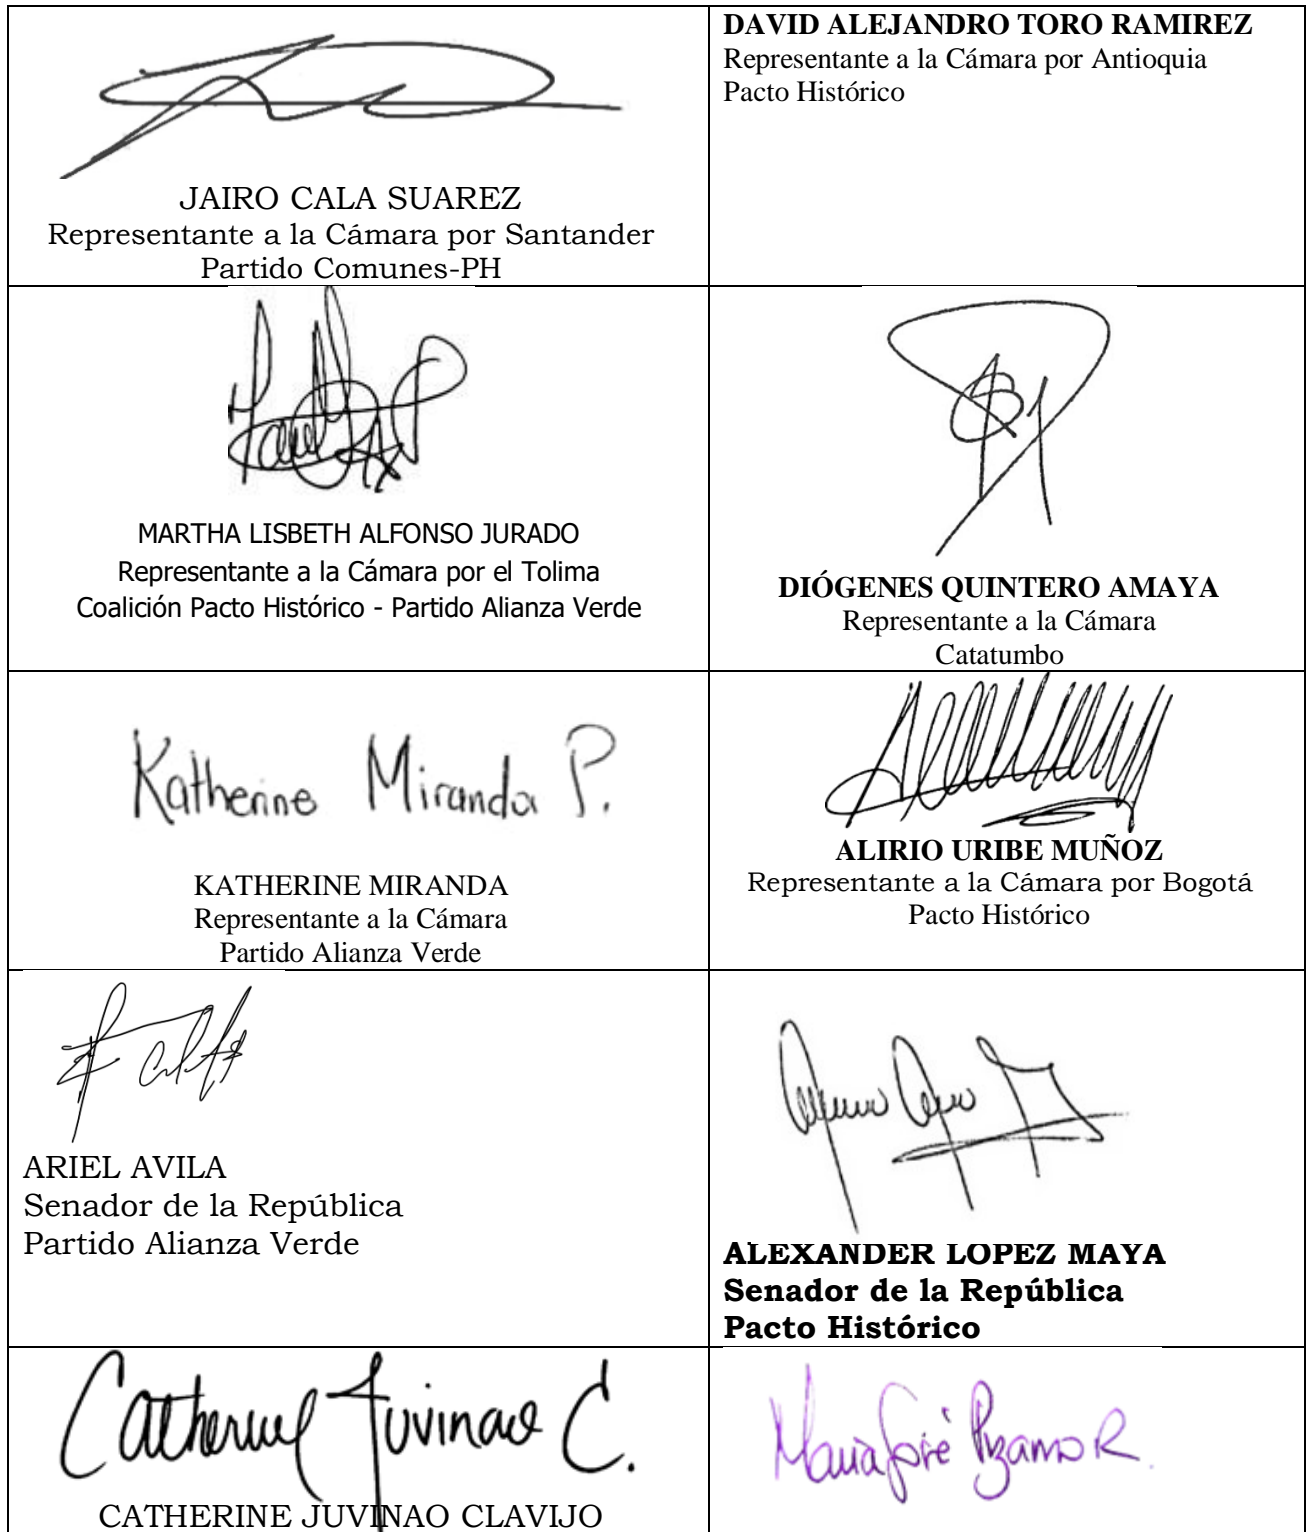 JAIRO CALA SUAREZ
Representante a la Cámara por Santander
Partido Comunes-PH
DAVID ALEJANDRO TORO RAMIREZ
Representante a la Cámara por Antioquia
Pacto Histórico
MARTHA LISBETH ALFONSO JURADO
Representante a la Cámara por el Tolima
Coalición Pacto Histórico - Partido Alianza Verde
DIÓGENES QUINTERO AMAYA
Representante a la Cámara
Catatumbo
Katherine Miranda P.
KATHERINE MIRANDA
Representante a la Cámara
Partido Alianza Verde
ALIRIO URIBE MUÑOZ
Representante a la Cámara por Bogotá
Pacto Histórico
ARIEL AVILA
Senador de la República
Partido Alianza Verde
ALEXANDER LOPEZ MAYA
Senador de la República
Pacto Histórico
Catherine Juvinao C.
CATHERINE JUVINAO CLAVIJO
María José Pizarro R.